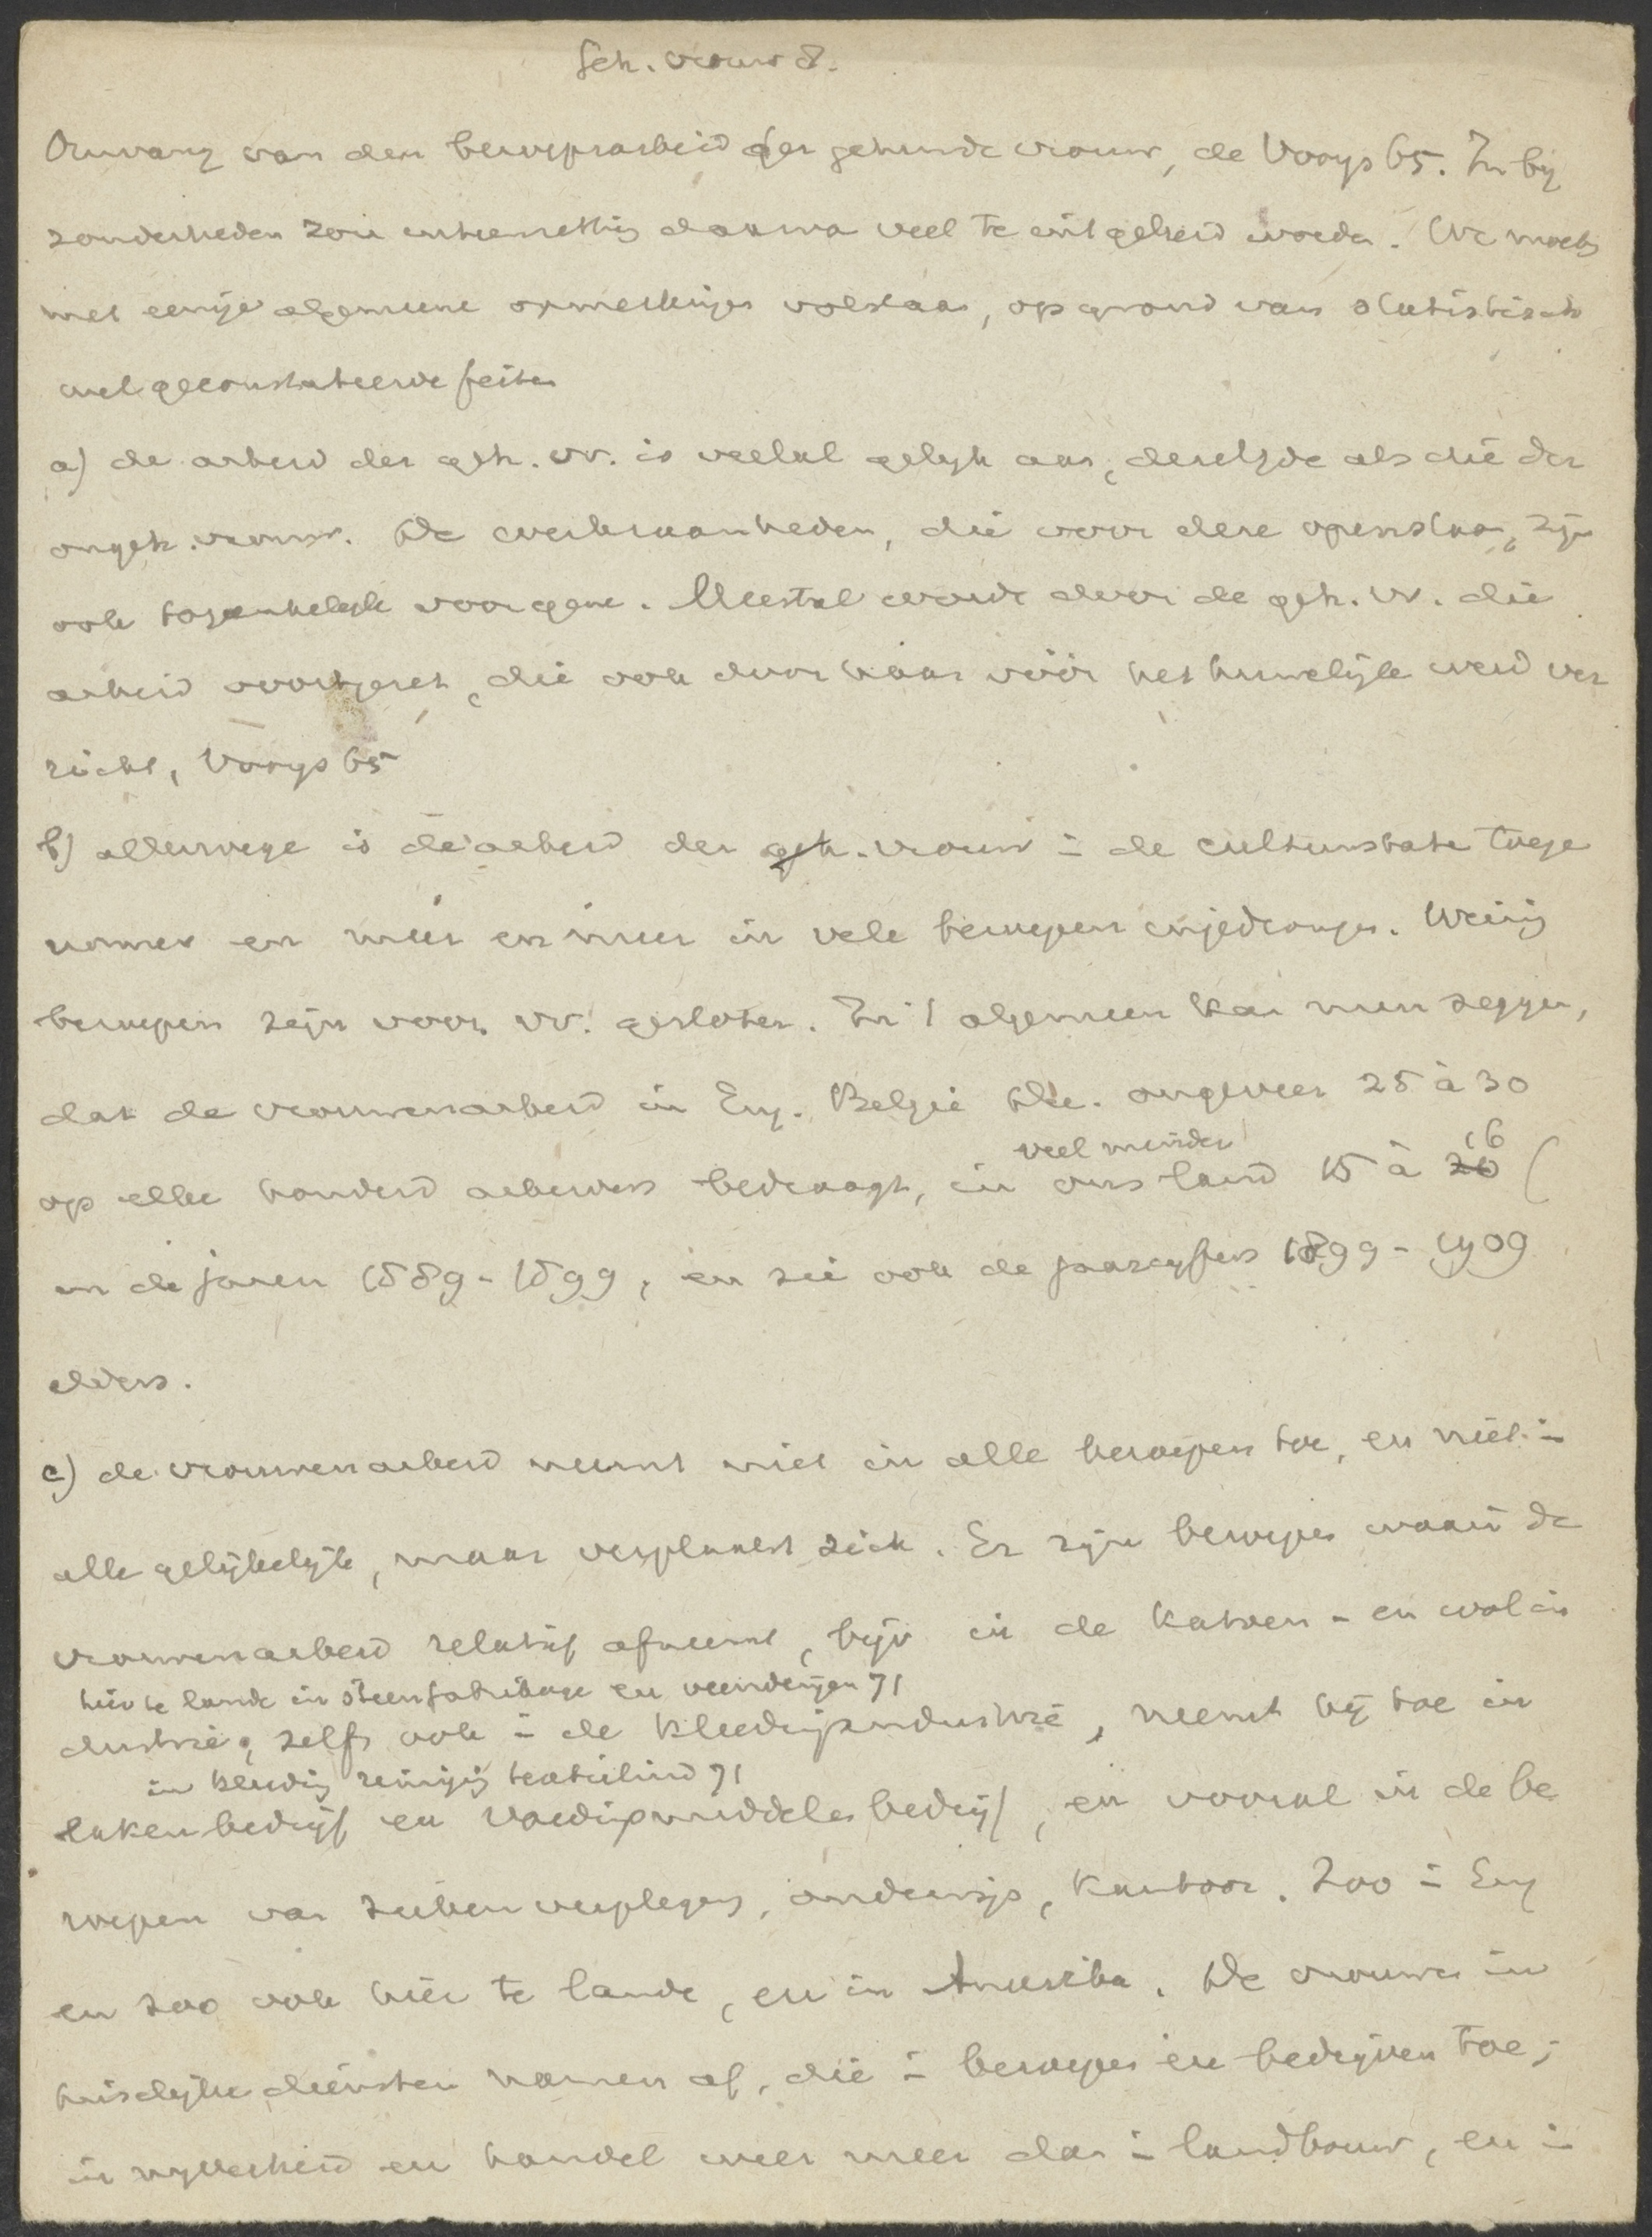 Geh. vrouw 8.
Omvang van den beroepsarbeid der gehuwde vrouw, de Vooys 65. In bij
zonderheden zou uiteenzetting daarvan veel te uitgebreid worden. We moeten
met eenige algemeene opmerkingen volstaan, op grond van statistisch
wel geconstateerde feiten
a) de arbeid der geh. vr. is veelal gelijk aan, dezelfde als die der
ongeh. vrouw. De werkzaamheden, die voor deze openstaan, zijn
ook toegankelijk voor gene. Meestal wordt door de geh. vr. die
arbeid voortgezet, die ook door haar vóór het huwelijk werd ver
richt, Vooys 65
b) allerwege is de arbeid der geh. vrouw in de cultuurstaten toege
nomen en meer en meer in vele beroepen ingedrongen. Weinig
beroepen zijn voor vr. gesloten. In 't algemeen kan men zeggen,
dat de vrouwenarbeid in Eng. België Du. ongeveer 25 à 30
op elke honderd arbeiders bedraagt, in ons land veel minder 15 à 20 16 (
in de jaren 1889-1899, en zie ook de jaarcijfers 1899-1909
elders.
c) de vrouwenarbeid neemt niet in alle beroepen toe, en niet in
alle gelijkelijk, maar verplaatst zich. Er zijn beroepen waarin de
vrouwenarbeid relatief afneemt, bijv in de katoen- en wolin
hier te lande in steenfabricage en veenderijen 71
dustrie, zelfs ook in de kleedingindustrie, neemt hij toe in
in kleeding reiniging textielind 71
lakenbedrijf en voedingsmiddelenbedrijf, en vooral in de be
roepen van ziekenverpleging, onderwijs, kantoor. Zoo in Eng
en zoo ook hier te lande, en in Amerika. De vrouwen in
huiselijke diensten namen af, die in beroepen en bedrijven toe;
in nijverheid en handel weer meer dan in landbouw, en in